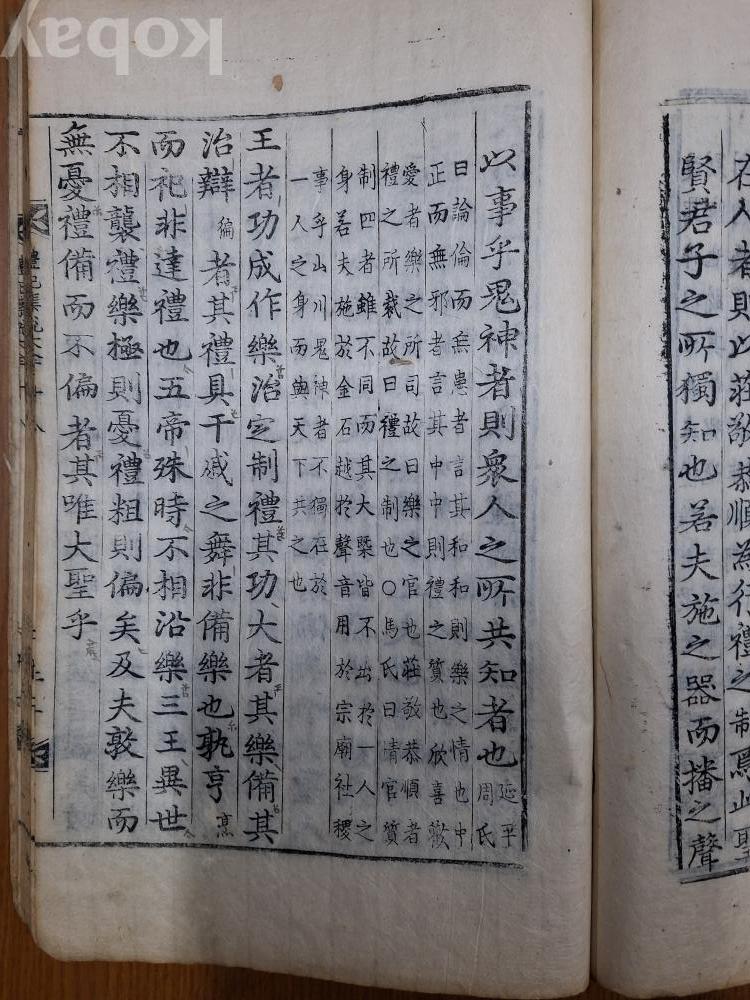 kobay
在人者則以莊敬恭順為行禮之制焉此聖
賢君子之所獨知也若夫施之器而播之聲
以事乎鬼神者則衆人之所共知者也延平周氏
曰論倫而無患者言其和和則樂之情也中
正而無邪者言其中中則禮之質也欣喜歡
愛者樂之所司故曰樂之官也莊敬恭順者
禮之所裁故曰禮之制也○馬氏曰情官質
制四者雖不同而其大槩皆不出於一人之
身若夫施於金石越於聲音用於宗廟社稷
事乎山川鬼神者不獨在於
一人之身而與天下共之也
王者功成作樂治定制禮其功大者其樂備其
治辯徧者其禮具干戚之舞非備樂也孰亨烹
而祀非達禮也五帝殊時不相沿樂三王異世
不相襲禮樂極則憂禮粗則偏矣及夫敦樂而
無憂禮備而不偏者其唯大聖乎
禮記集說大全
十八